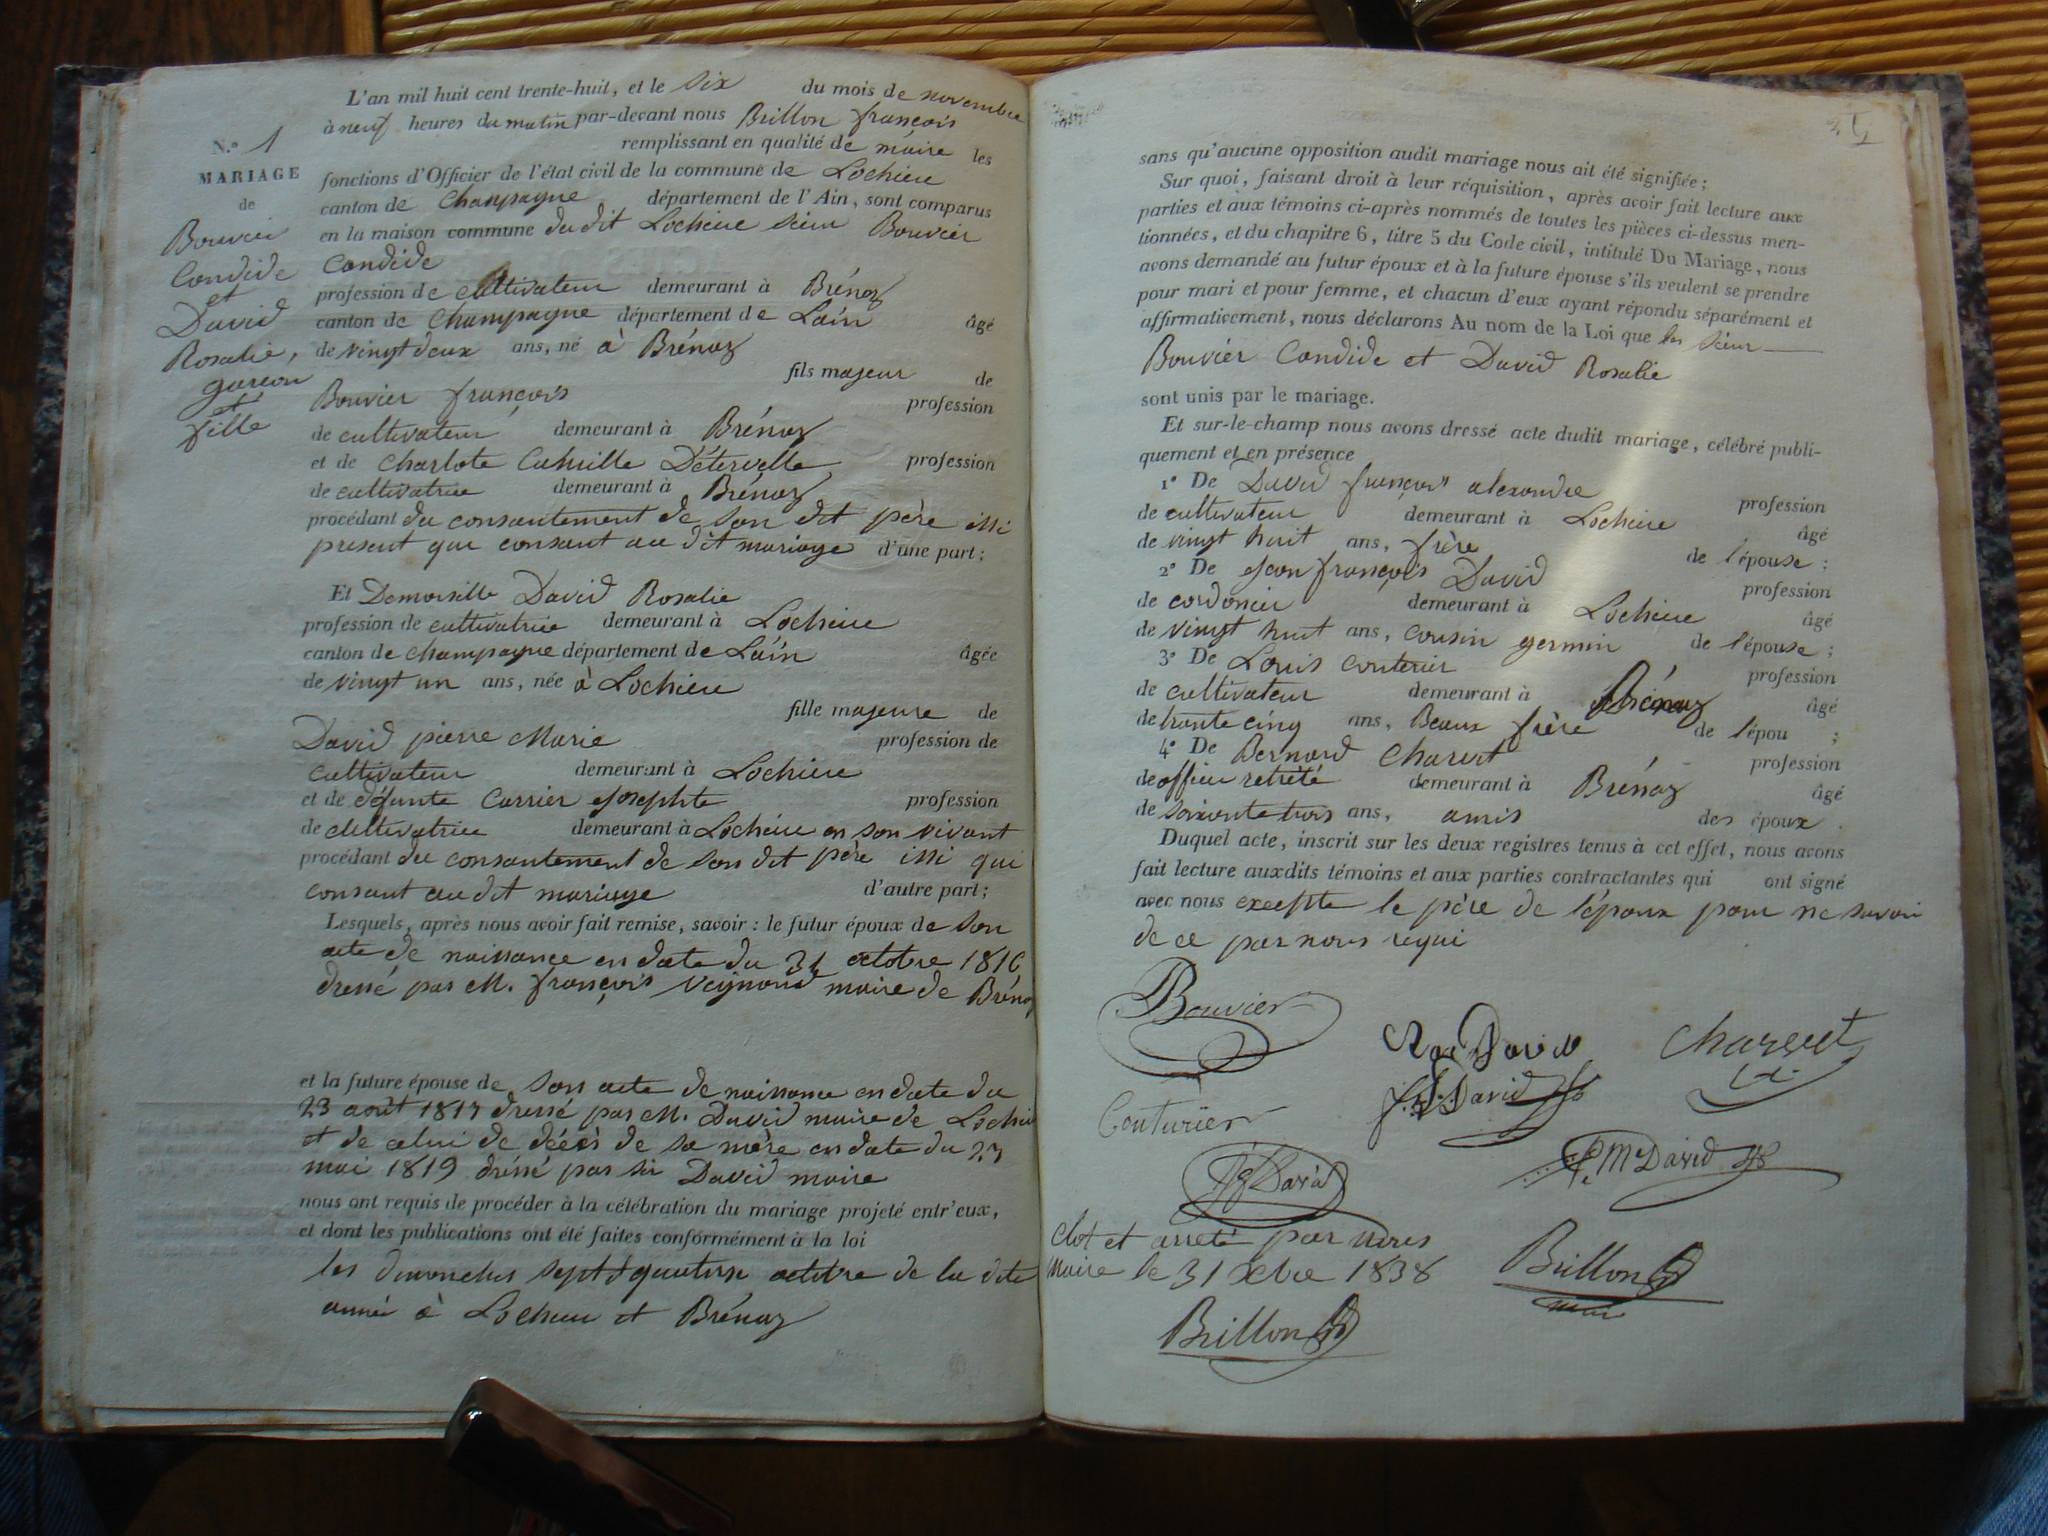 L'an mil huit cent trente-huit, et le six du mois de novembre
à neuf heures du matin par-devant nous Brillon françois
remplissant en qualité de maire les
fonctions d'Officier de l'état civil de la commune de Lochieu
canton de Champagne département de l'Ain, sont comparus
en la maison commune du dit Lochieu sieur Bouvier
Candide
profession de cultivateur demeurant à Brénaz
canton de Champagne département de Laín âgé
de vingt deux ans, né à Brénaz
fils majeur de
Bouvier françois
profession
de cultivateur demeurant à Brénaz
et de Charlote Camille Détervelle profession
de cultivatrice demeurant à Brénaz
procédant du consantement de son dit père issi
present qui consant au dit mariage d'une part;
N.o 1
MARIAGE
de
Bouvier
Candide
et
David
Rosalie,
garçon
et
fille
Et Demoiselle David Rosalie
profession de cultivatrice demeurant à Lochieu
canton de champagne département de Laín âgée
de vingt un ans, née à Lochieu
fille majeure de
David pierre Marie profession de
cultivateur demeurant à Lochieu
et de défunte Carrier Josephte profession
de cultivatrice demeurant à Lochieu en son vivant
procédant du consantement de son dit père issi qui
consant au dit mariage d'autre part;
Lesquels, après nous avoir fait remise, savoir : le futur époux de son
acte de naissance en date du 31 octobre 1816
dressé par M. françois Veymond maire de Brénaz
et la future épouse de son acte de naissance en date du
23 août 1817 dressé par M. David maire de Lochieu
et de celui de décès de sa mère en date du 27
mai 1819 dréssé par sir David maire
nous ont requis de procéder à la célébration du mariage projeté entr'eux,
et dont les publications ont été faites conformément à la loi
les dimenches sept & quatorse octobre de la dite
année à Lochieu et Brénaz
sans qu'aucune opposition audit mariage nous ait été signifiée ;
Sur quoi, faisant droit à leur réquisition, après avoir fait lecture aux
parties et aux témoins ci-après nommés de toutes les pièces ci-dessus men-
tionnées, et du chapitre 6, titre 5 du Code civil, intitulé Du Mariage, nous
avons demandé au futur époux et à la future épouse s'ils veulent se prendre
pour mari et pour femme, et chacun d'eux ayant répondu séparément et
affirmativement, nous déclarons Au nom de la Loi que les sieur
Bouvier Candide et David Rosalie
sont unis par le mariage.
Et sur-le-champ nous avons dressé acte dudit mariage, célébré publi-
quement et en présence
1° De David françois alexandre profession
de cultivateur demeurant à Lochieu âgé
de vingt huit ans, frère de l'épouse ;
2° De Jean françois David profession
de cordonier demeurant à Lochieu âgé
de vingt huit ans, cousin germin de l'épouse ;
3° De Louis Couterier profession
de cultivateur demeurant à Brénaz âgé
de trante cinq ans, Beaux frère de l'épou ;
4° De Bernard Charvet profession
de officier retrété demeurant à Brénaz âgé
de soixante trois ans, amis des époux.
Duquel acte, inscrit sur les deux registres tenus à cet effet, nous avons
fait lecture auxdits témoins et aux parties contractantes qui ont signé
avec nous excepte le père de l'époux pour ne savoir
de ce par nous requi
Bouvier
David
Charvet
J. f. David
Couturier
P. M David
David
Brillon
maire
Clot et arreté par nous
Maire le 31 xbre 1838
Brillon